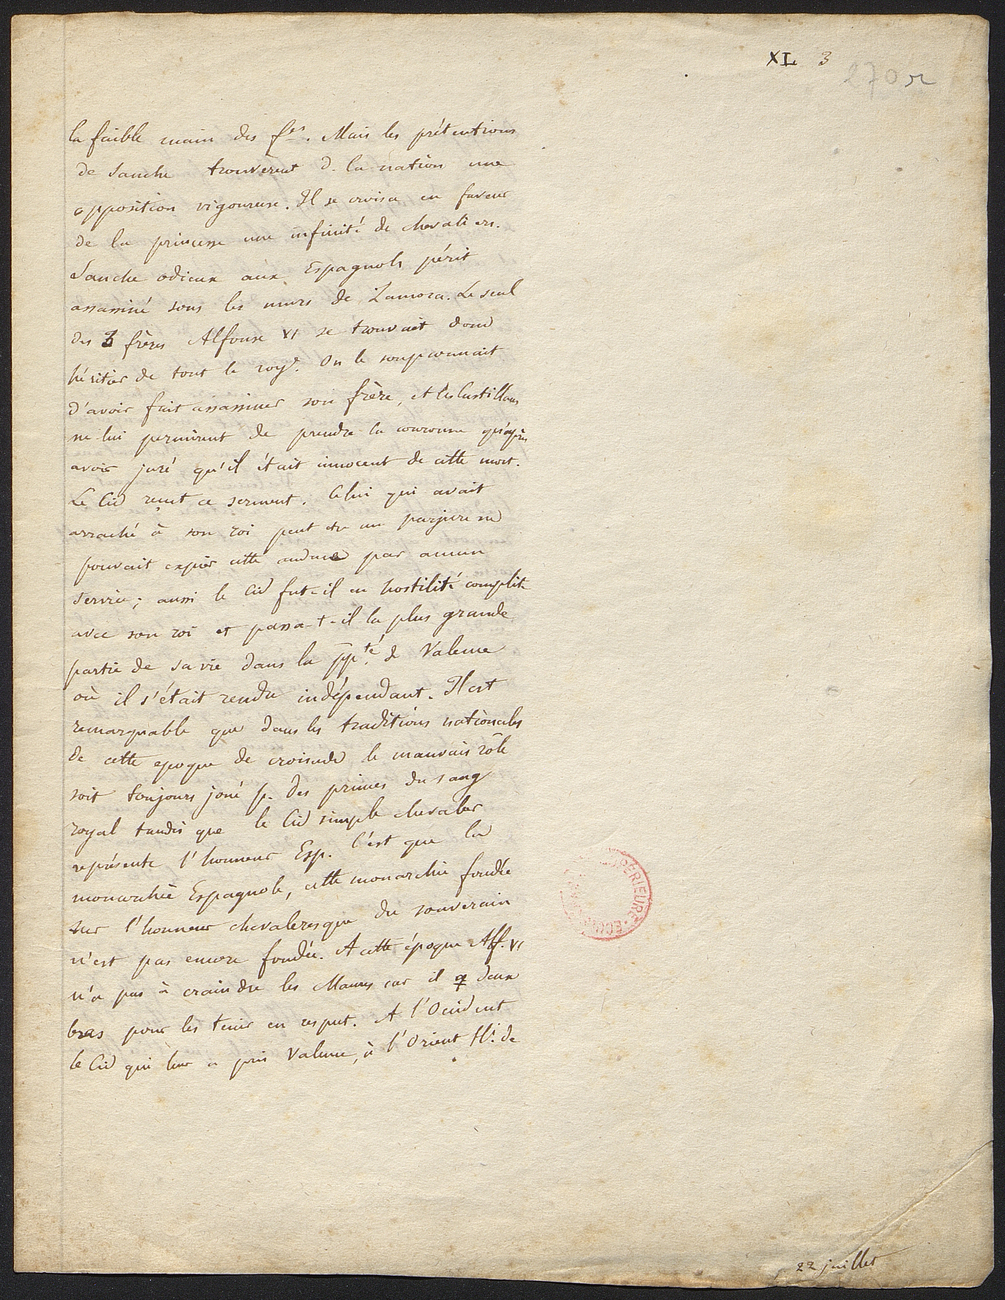 XL 3
270 r
la faible main des fes. Mais les prétentions
de Sanche trouverent d. la nation une
opposition vigoureuse. Il se croisa en faveur
de la princesse une infinité de chevaliers.
Sanche odieux aux Espagnols périt
assassiné sous les murs de Zamora. Le seul
des 3 frères Alfonse VI se trouvait donc
héritier de tout le roye. On le soupçonnait
d'avoir fait assassiner son frère, et les Castillans
ne lui permirent de prendre la couronne qu'après
avoir juré qu'il était innocent de cette mort.
Le Cid reçut ce serment. Celui qui avait
arraché à son roi peut etre un parjure ne
pouvait expier cette audace par aucun
service; aussi le Cid fut-il en hostilité complite
avec son roi et passa-t-il la plus grande
partie de sa vie dans la ppté. de Valence
où il s'était rendu indépendant. Il est
remarquable que dans les traditions nationales
de cette epoque de croisade le mauvais rôle
soit toujours joué p. des princes du sang
royal tandis que le Cid simple chevalier
représente l'honneur Esp. C'est que la
monarchie Espagnole, cette monarchie fondée
sur l'honneur chevaleresque du souverain
n'est pas encore fondée. A cette époque Alf. VI
n'a pas à craindre les Maures car il a deux
bras pour les tenir en respect. A l'Occident
le Cid qui leur a pris Valence, à l'Orient H. de
22 juillet